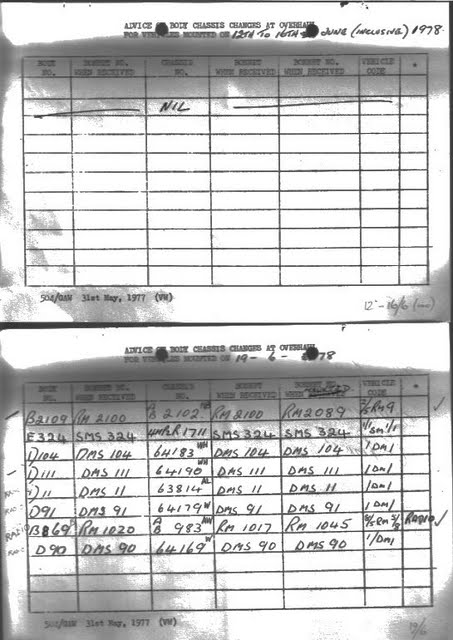 ADVICE OF BODY CHASSIS CHANGES AT OVERHAUL
FOR VEHICLES MOUNTED ON 12TH TO 16TH JUNE (INCLUSIVE) 1978.
BODY NO. BONNET NO. WHEN RECEIVED CHASSIS NO. BONNET WHEN RECEIVED BONNET NO. VEHICLE CODE *
NIL
504/GAW 31st May, 1977 (VW)
12 - 16/6
ADVICE OF BODY CHASSIS CHANGES AT OVERHAUL
FOR VEHICLES MOUNTED ON 19 - 6 - 78
BODY NO. BONNET NO. WHEN RECEIVED CHASSIS NO. BONNET WHEN RECEIVED BONNET NO. WHEN VEHICLE CODE *
B2109 RM 2100 B 2102 RM 2100 RM 2089 RM9
E324 SMS 324 1711 SMS 324 SMS 324
D104 DMS 104 64183 DMS 104 DMS 104 1DM1
D111 DMS 111 64190 WH DMS 111 DMS 111 1DM1
D11 DMS 11 63814 AL DMS 11 DMS 11 1DM1
D91 DMS 91 64179 W DMS 91 DMS 91 1DM1
RADIO B869 RM 1020 A B 983 RM 1017 RM 1045 RADIO
D90 DMS 90 64169 W DMS 90 DMS 90 1/DM1
504/GAW 31st May, 1977 (VW)
19/6